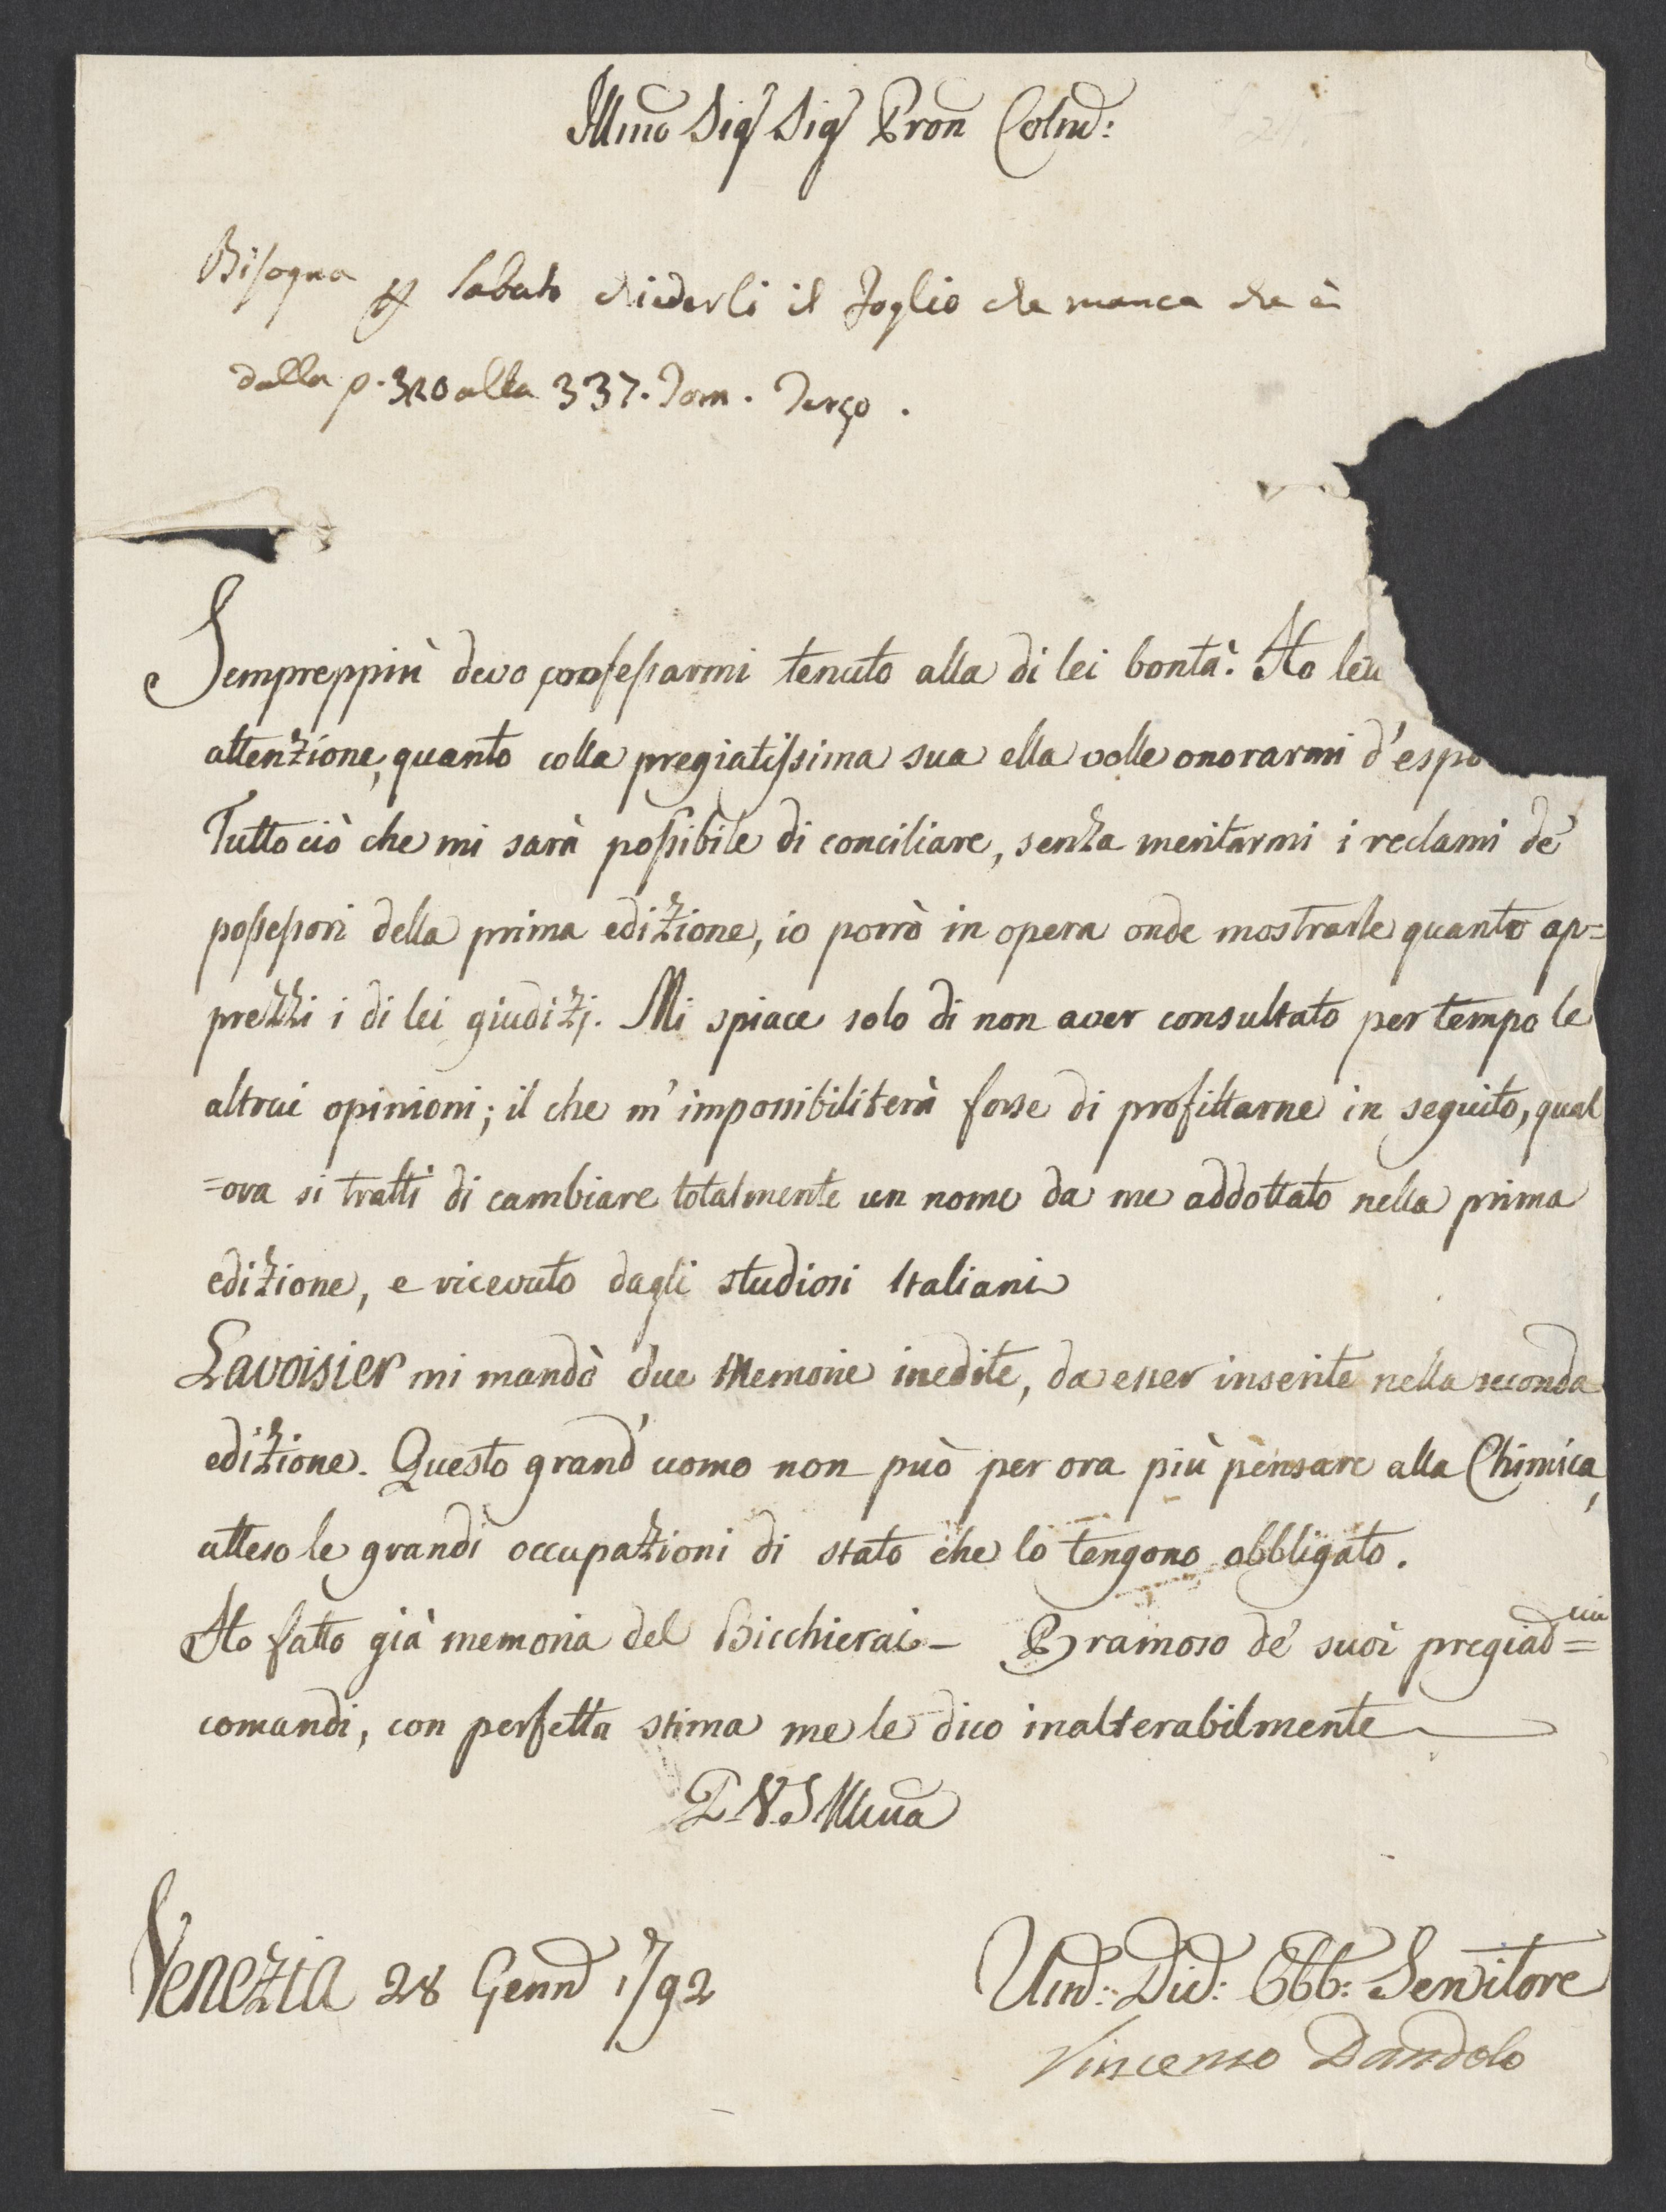 Illmo Sig Sig Pron Colmo:
Bisogna p Sabato chiederli il foglio che manca che è
dalla p. 320 alla 337. Tom. Terzo.
Sempreppiù devo confessarmi tenuto alla di lei bontà. Ho
attenzione, quanto colla pregiatissima sua ella volle onorarmi d'espo
Tutto ciò che mi sarà possibile di conciliare, senza meritarmi i reclami de'
possessori della prima edizione, io porrò in opera onde mostrarle quanto ap=
prezzi i di lei giudizj. Mi spiace solo di non aver consultato per tempo le
altrui opinioni; il che m'impossibiliterà forse di profittarne in seguito, qual
=ora si tratti di cambiare totalmente un nome da me addottato nella prima
edizione, e ricevuto dagli studiosi Italiani
Lavoisier mi mandò due Memorie inedite, da esser inserite nella seconda
edizione. Questo grand'uomo non può per ora più pensare alla Chimica,
atteso le grandi occupazioni di stato che lo tengono obbligato.
Ho fatto già memoria del Bicchierai - Bramoso de' suoi pregiad=mi
comandi, con perfetta stima me le dico inalterabilmente
D. V. S Illma
Venezia 28 Genno 1792
Umo: Divo: Obb: Servitore
Vincenzo Dandolo